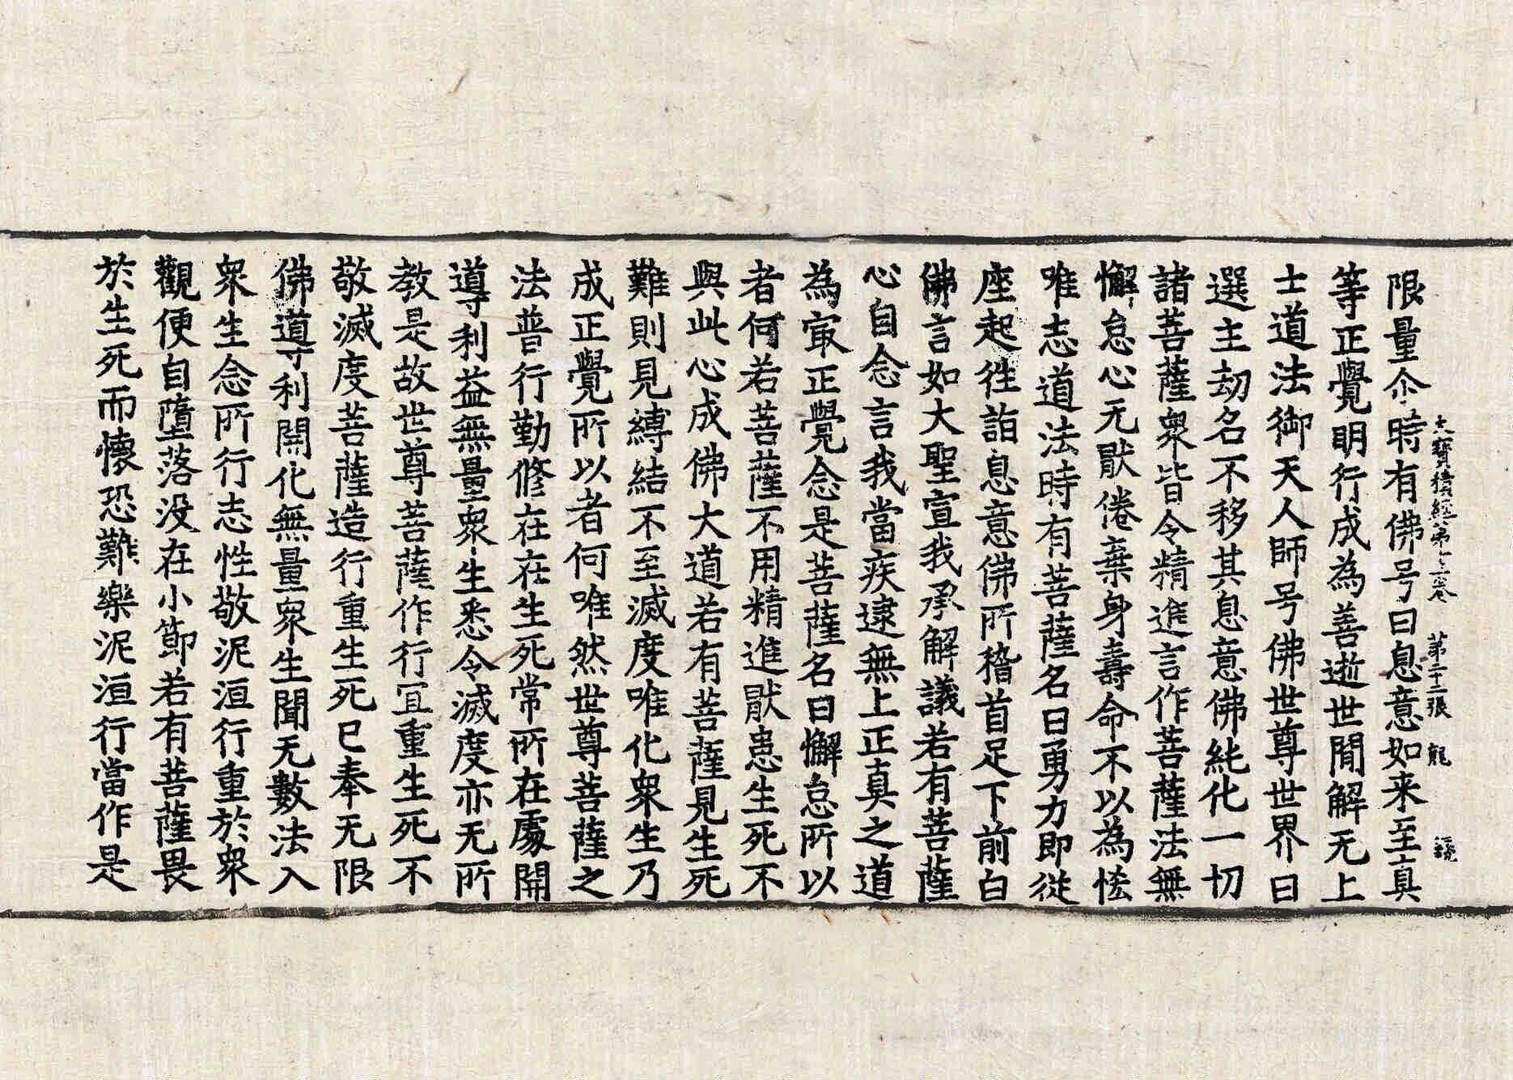 大寶積經第卷 第二十二張 龍
限量尒時有佛号曰息意如来至真
等正覺明行成為善逝世閒解无上
士道法御天人師号佛世尊世界曰
選主劫名不移其息意佛純化一切
諸菩薩衆皆令精進言作菩薩法無
懈怠心无猒倦棄身壽命不以為恡
唯志道法時有菩薩名曰勇力即從
座起往詣息意佛所稽首足下前白
佛言如大聖宣我承解議若有菩薩
心自念言我當疾逮無上正真之道
為冣正覺念是菩薩名曰懈怠所以
者何若菩薩不用精進猒患生死不
與此心成佛大道若有菩薩見生死
難則見縛結不至滅度唯化衆生乃
成正覺所以者何唯然世尊菩薩之
法普行勤修在在生死常所在處開
導利益無量衆生悉令滅度亦无所
教是故世尊菩薩作行宜重生死不
敬滅度菩薩造行重生死已奉无限
佛道導利開化無量衆生聞无數法入
衆生念所行志性敬泥洹行重於衆
觀便自墮落没在小節若有菩薩畏
於生死而懷恐難樂泥洹行當作是